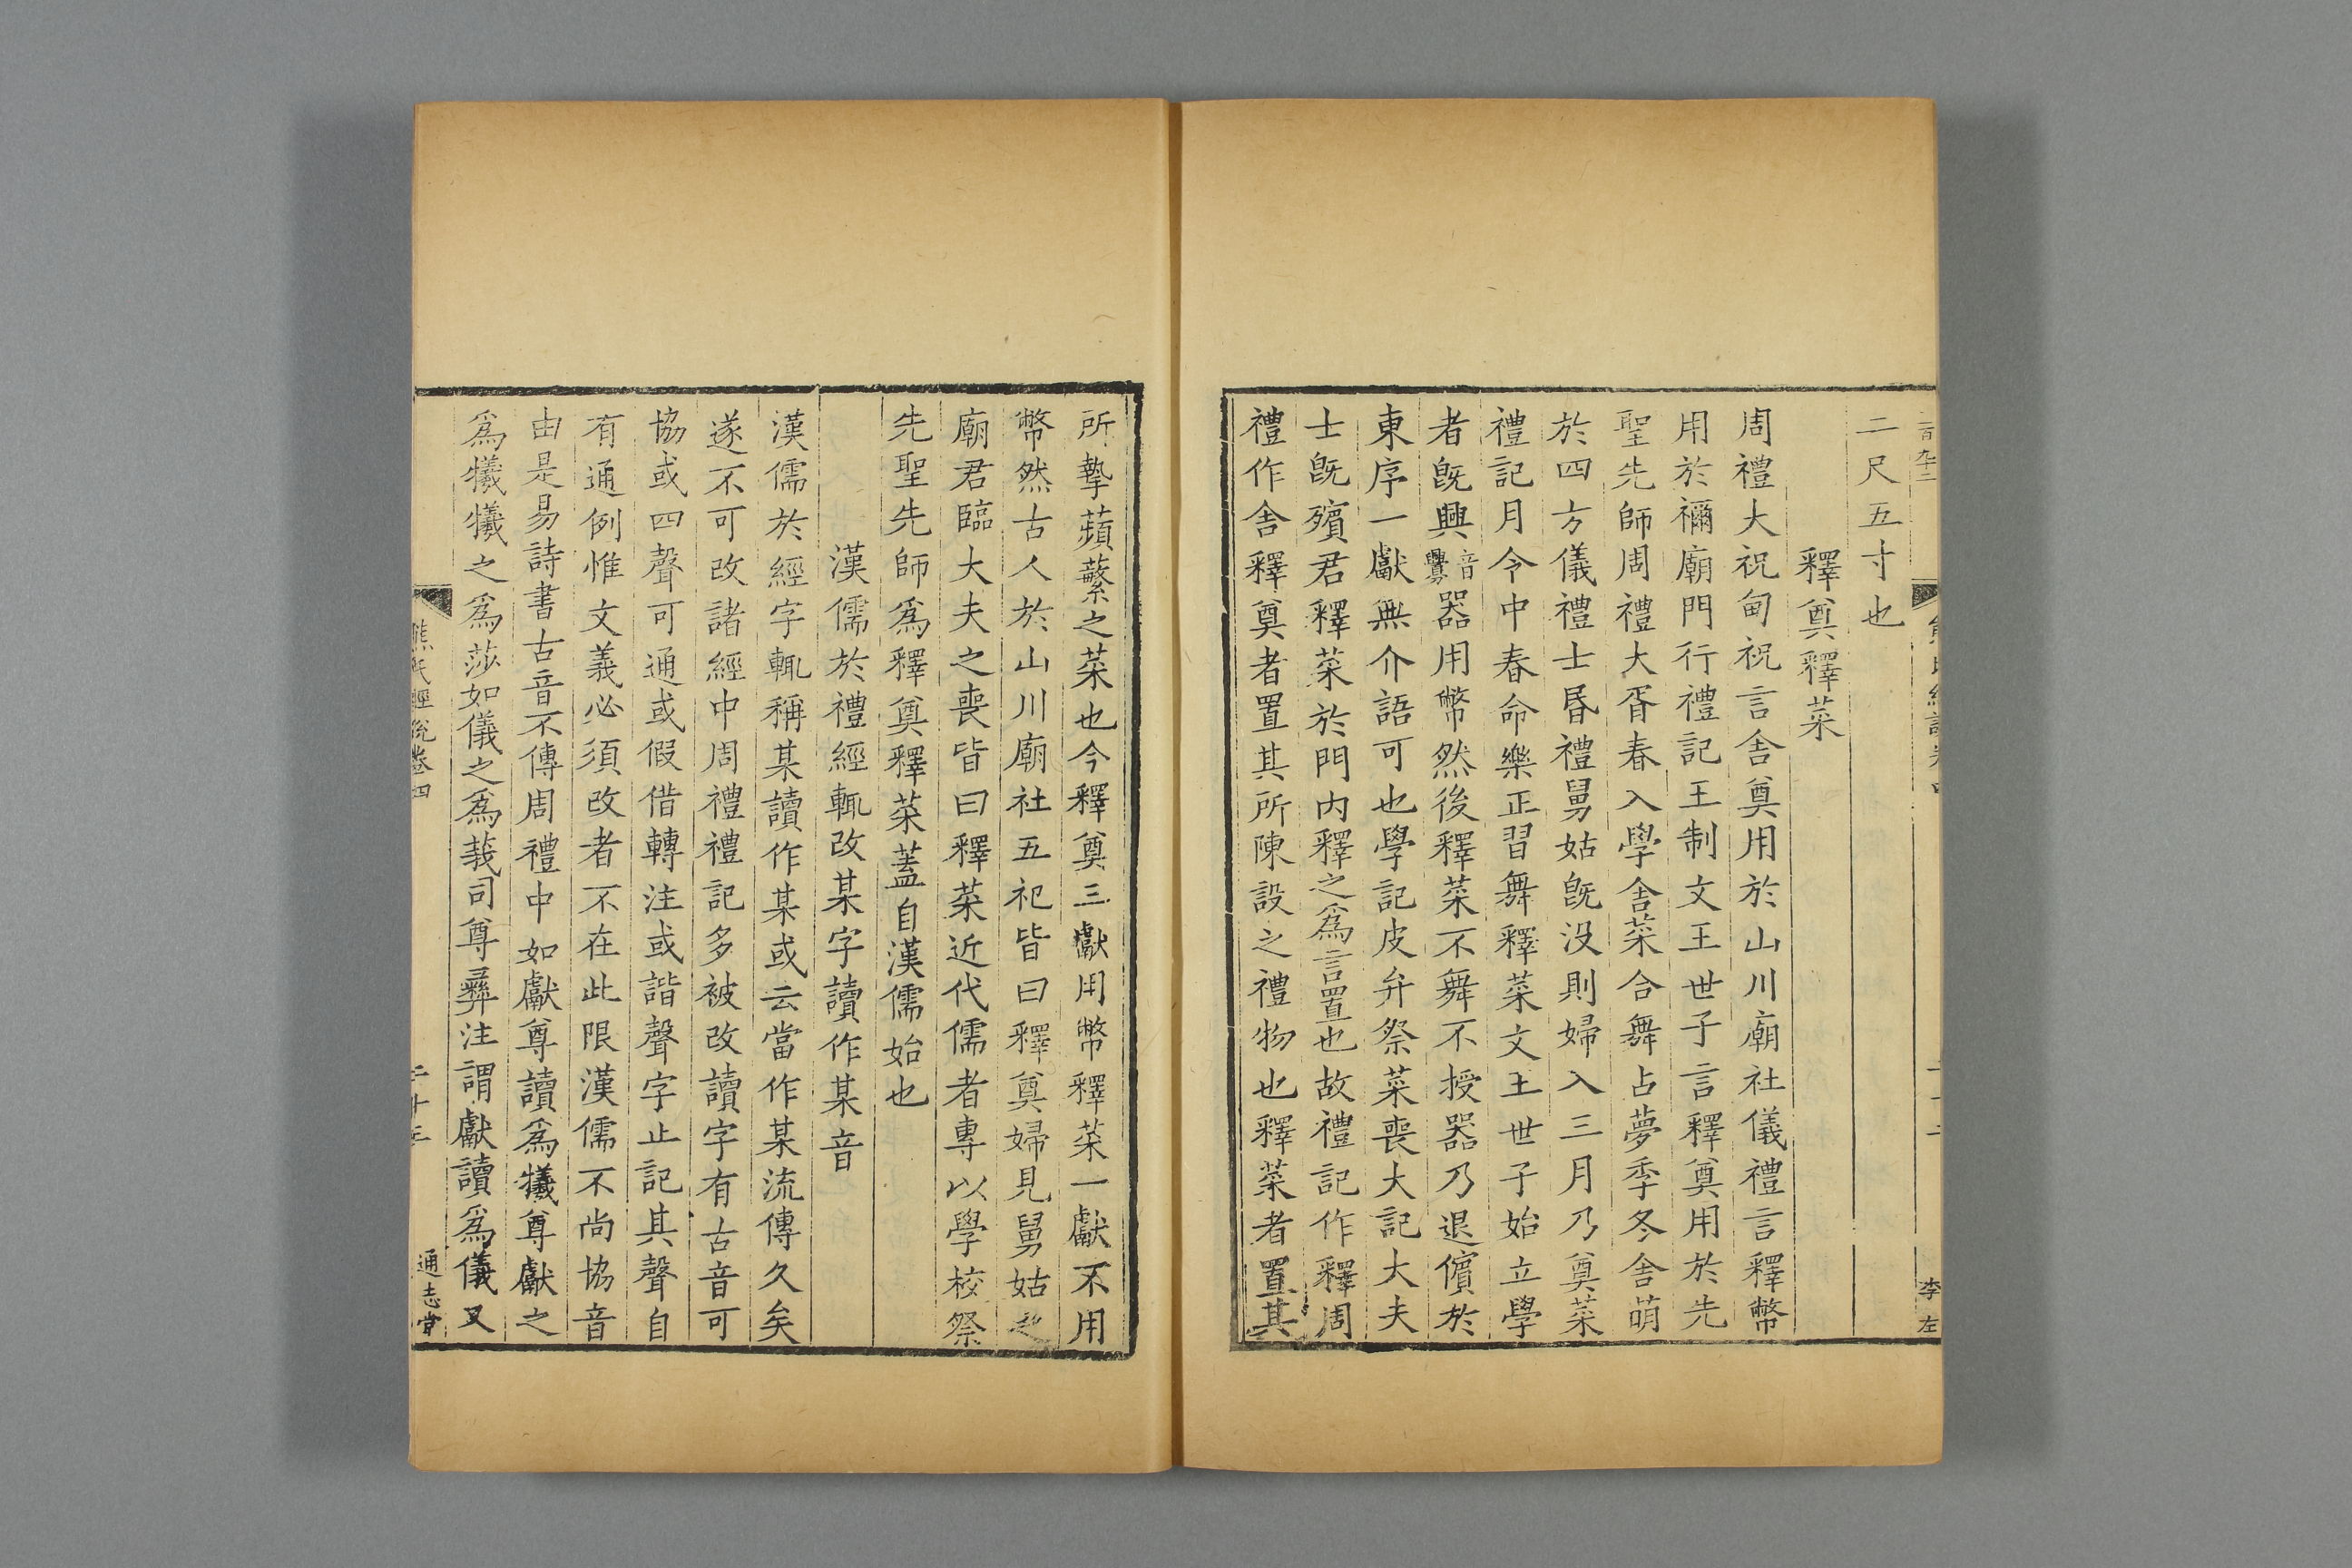 二百九十二
李左
二尺五寸也
釋奠釋菜
周禮大祝甸祝言舍奠用於山川廟社儀禮言釋幣
用於禰廟門行禮記王制文王世子言釋奠用於先
聖先師周禮大胥春入學舍菜合舞占夢季冬舍萌
於四方儀禮士昏禮舅姑旣没則婦入三月乃奠菜
禮記月令中春命樂正習舞釋菜文王世子始立學
者旣興音釁器用幣然後釋菜不舞不授器乃退儐於
東序一獻無介語可也學記皮弁祭菜喪大記大夫
士旣殯君釋菜於門内釋之爲言置也故禮記作釋周
禮作舍釋奠者置其所陳設之禮物也釋菜者置其
所摯蘋蘩之菜也今釋奠三獻用幣釋菜一獻不用
幣然古人於山川廟社五祀皆曰釋奠婦見舅姑之
廟君臨大夫之喪皆曰釋菜近代儒者專以學校祭
先聖先師爲釋奠釋菜蓋自漢儒始也
漢儒於禮經輒改某字讀作某音
漢儒於經字輒稱某讀作某或云當作某流傳久矣
遂不可改諸經中周禮禮記多被改讀字有古音可
協或四聲可通或假借轉注或諧聲字止記其聲自
有通例惟文義必須改者不在此限漢儒不尚協音
由是易詩書古音不傳周禮中如獻尊讀爲犧尊獻之
爲犧犧之爲莎如儀之爲莪司尊彝注謂獻讀爲儀又
熊氏經說卷四
二十三
通志堂